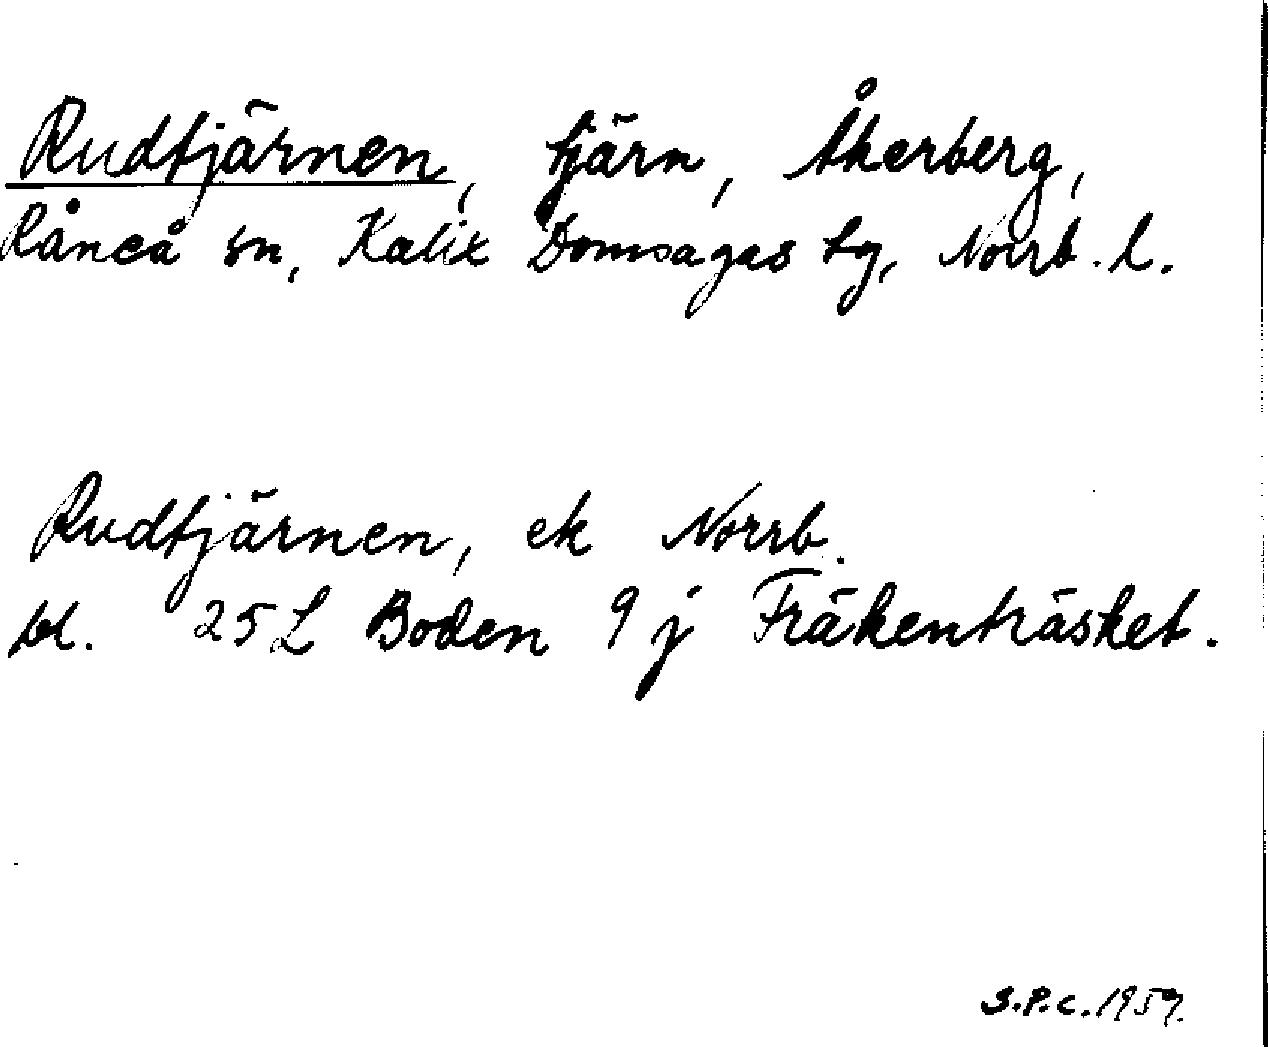 Rudtjärnen, tjärn, Åkerberg,
Råneå sn, Kalix Domsagas tg, Norrb. l.
Rudtjärnen, ek Norrb.
bl. 25 L Boden 9 j Fräkenträsket.
S.P.C. 1959.